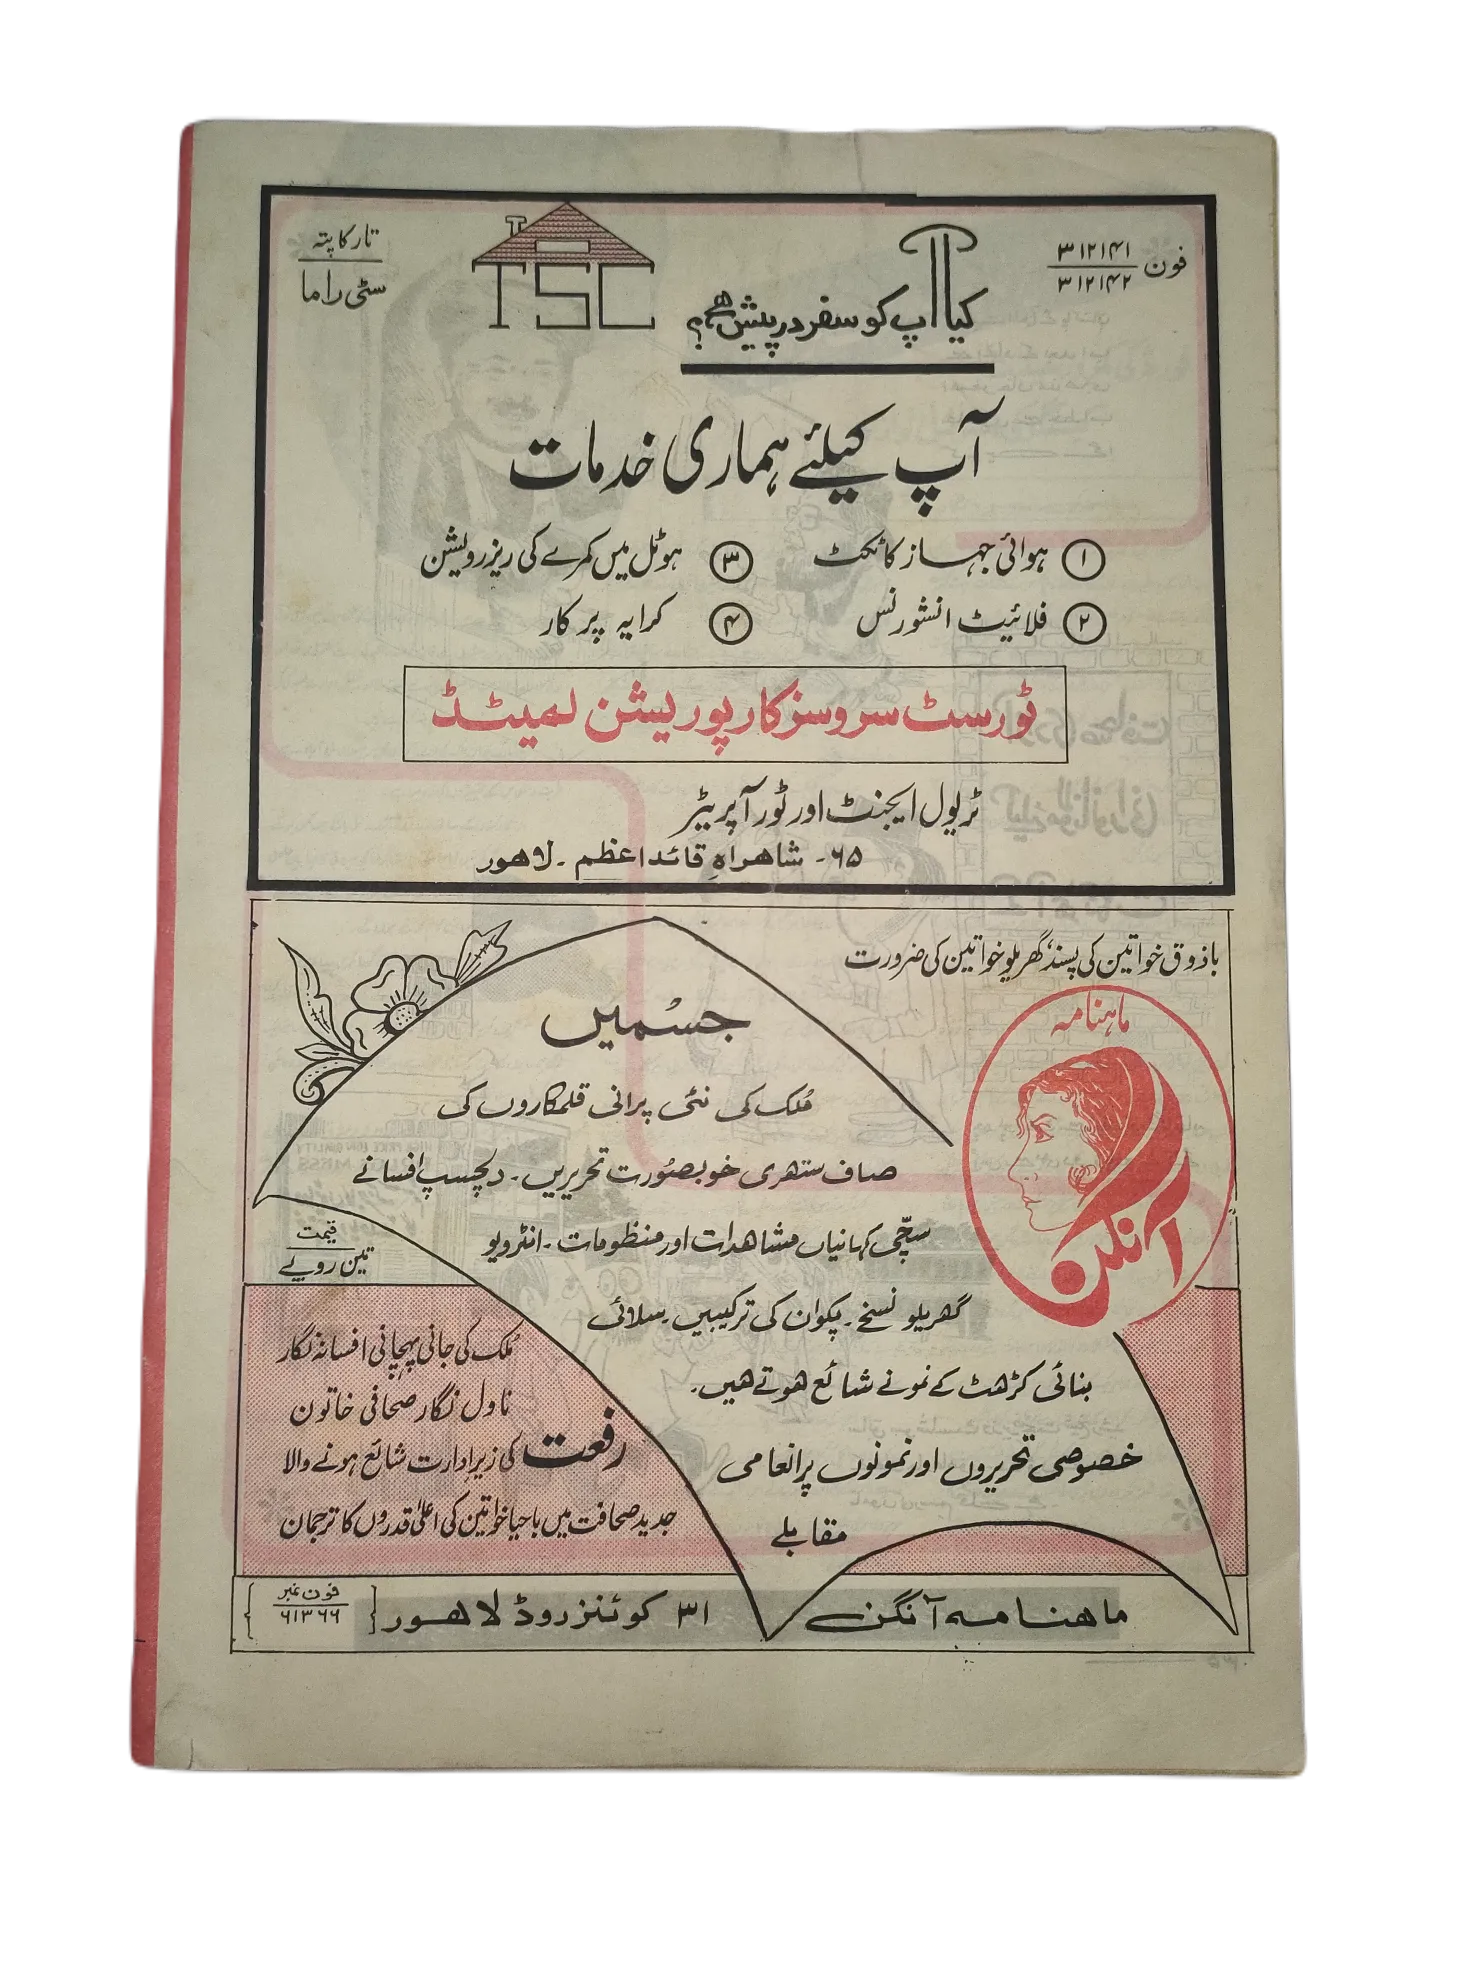 فون ۳۱۲۱۴۱
۳۱۲۱۴۲
TSC
تار کا پتہ
سٹی راما
کیا آپ کو سفر درپیش ھے؟
آپ کیلئے ہماری خدمات
۱ ہوائی جہاز کا ٹکٹ
۳ ہوٹل میں کمرے کی ریزرویشن
۲ فلائیٹ انشورنس
۴ کرایہ پر کار
ٹورسٹ سروسز کارپوریشن لمیٹڈ
ٹریول ایجنٹ اور ٹور آپریٹر
۶۵۔ شاھراہِ قائداعظم ۔ لاھور
باذوق خواتین کی پسند، گھریلو خواتین کی ضرورت
ماہنامہ
آنگن
جسْمیں
مُلک کی نئی پرانی قلمکاروں کی
صاف ستھری خوبصُورت تحریریں۔ دلچسپ افسانے
سچّی کہانیاں مشاھدات اور منظومات ۔ انٹرویو
گھریلو نسخے۔ پکوان کی ترکیبیں۔ سلائی
بنائی کڑھت کے نمونے شائع ھوتے ھیں۔
خصوصی تحریروں اور نمونوں پر انعامی
مقابلے
قیمت
تین روپے
مُلک کی جانی پہچانی افسانہ نگار
ناول نگار صحافی خاتون
رفعت کی زیر ادارت شائع ہونے والا
جدید صحافت میں باحیا خواتین کی اعلیٰ قدروں کا ترجمان
ماھنامہ آنگن
۳۱ کوئنز روڈ لاھور
فون نمبر
۶۱۳۶۶